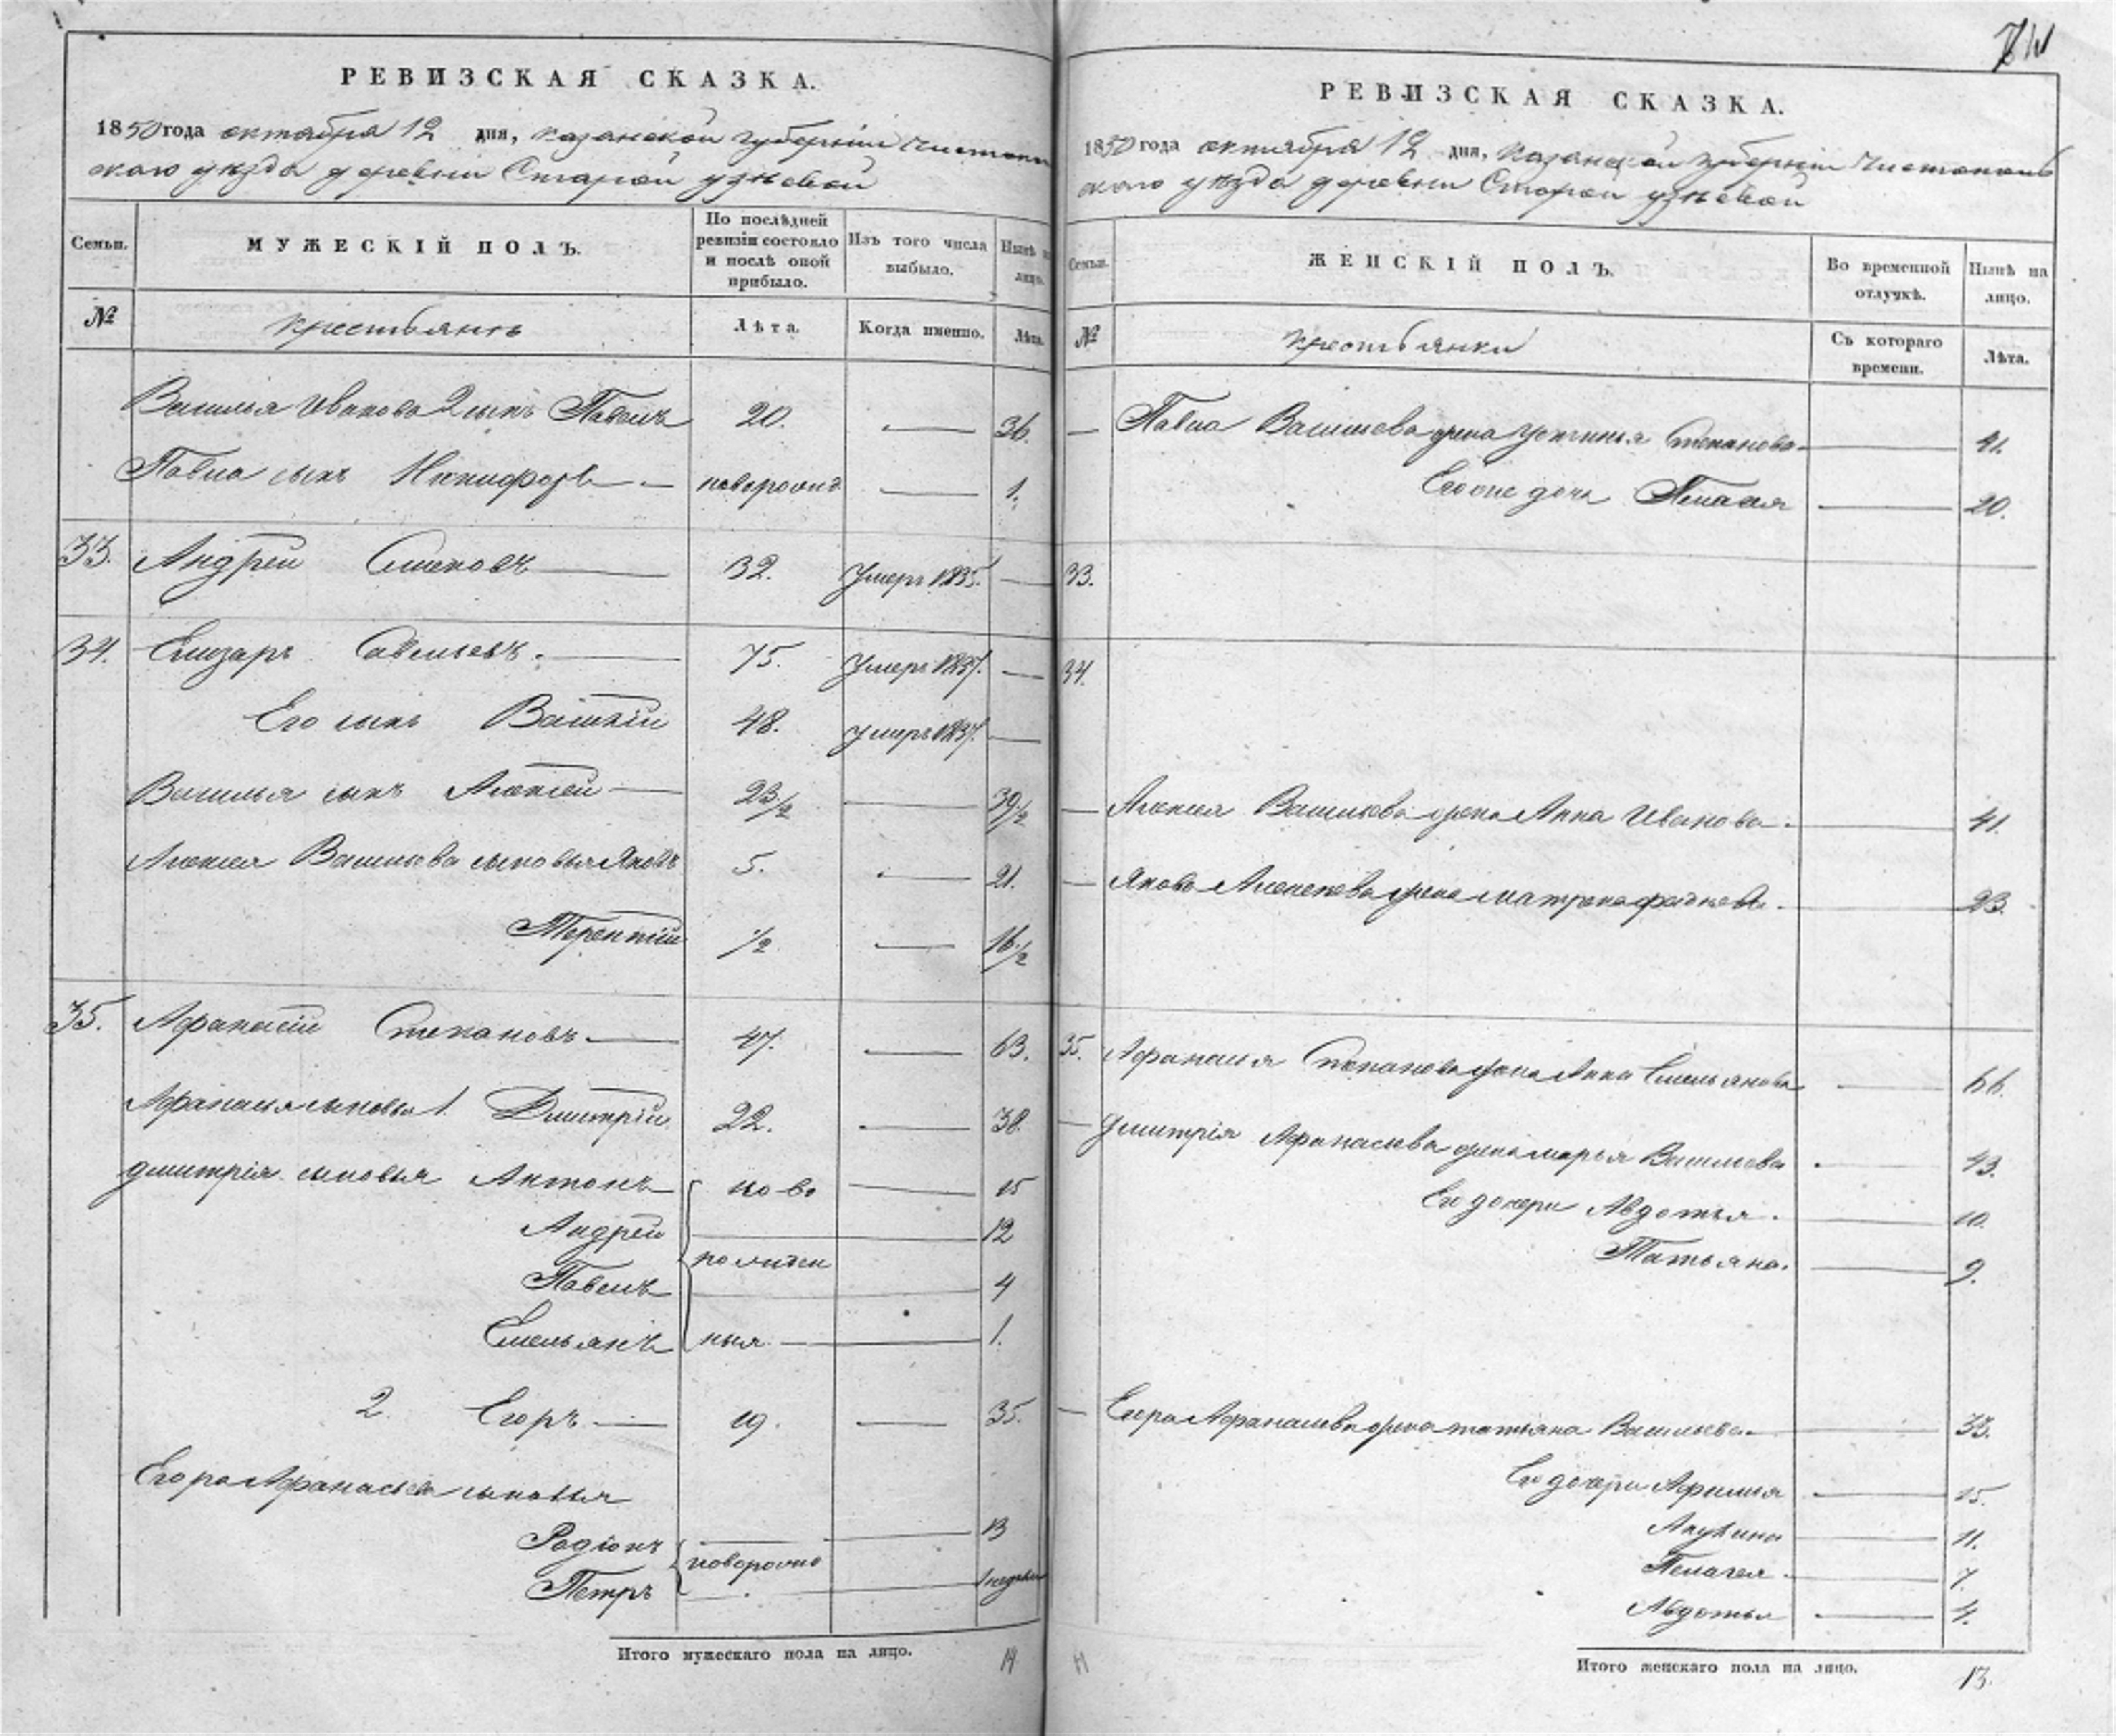 РЕВИЗСКАЯ СКАЗКА.
1850 года октября 12 дня, Казанской губернiи Чистополь
скаго уѣзда деревни Старой Узѣевой
Семьи.
МУЖЕСКІЙ ПОЛЪ.
По послѣдней ревизіи состояло и послѣ оной прибыло.
Изъ того числа выбыло.
Нынѣ на лицо.
№
крестьянъ
Лѣта.
Когда именно.
Лѣта.
Василья Иванова 2 сынъ Павелъ 20. 36.
Павла сынъ Никифоръ новорожд 1.
33. Андрей Семеновъ 32. умеръ 1835.
34. Елизаръ Савельевъ. 75. умеръ 1837.
Его сынъ Василій 48. умеръ 1837.
Василья сынъ Алексѣй 23 1/2 39 1/2
Алексея Васильева сыновья Яковъ 5. 21.
Терентій 1/2 16 1/2
35. Афанасій Степановъ 47. 63.
Афанасья сыновья 1. Дмитрій 22. 38.
Дмитрія сыновья Антонъ ново 15
Андрей 12
рожден
Павелъ 4
Емельянъ ныя 1.
2. Егоръ 19. 35.
Егора Афанасьева сыновья
Родіонъ 13
новорожд
Петръ 1 недѣли
Итого мужескаго пола на лицо. 14
711
РЕВИЗСКАЯ СКАЗКА.
1850 года октября 12 дня, Казанской губернiи Чистополь
скаго уѣзда деревни Старой Узѣевой
Семьи.
ЖЕНСКІЙ ПОЛЪ.
Во временной отлучкѣ.
Нынѣ на лицо.
№
крестьянки
Съ котораго времени.
Лѣта.
Павла Васильева жена Устинья Степанова 41.
Его же дочь Пелагея 20.
33.
34.
Алексея Васильева жена Анна Иванова 41.
Якова Алексеева жена Матрена 23.
35. Афанасья Степанова жена Анна Емельянова 66.
Дмитрія Афанасьева жена Марья Васильева 43.
Ег дочери Авдотья 10.
Татьяна. 9.
Егора Афанасьева жена Татьяна Васильева 33.
Ег дочери Афимья 15.
Акулина 11.
Пелагея 7.
Авдотья 4.
Итого женскаго пола на лицо. 13.